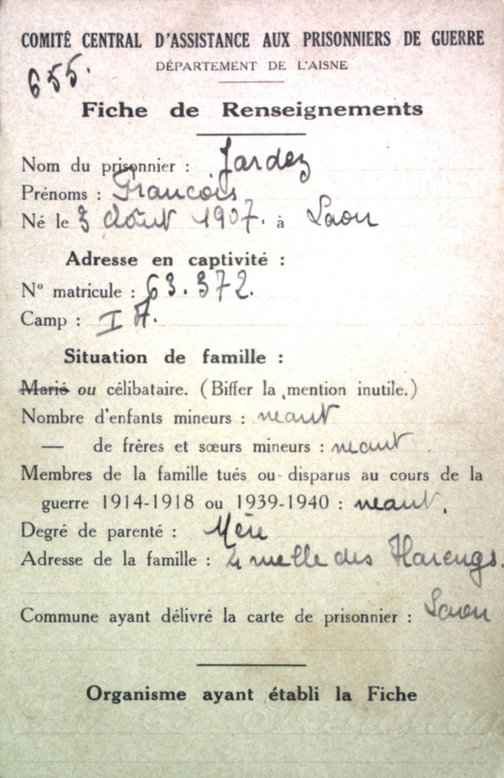 COMITÉ CENTRAL D'ASSISTANCE AUX PRISONNIERS DE GUERRE
DÉPARTEMENT DE L'AISNE
655.
Fiche de Renseignements
Nom du prisonnier : Jardez
Prénoms : François
Né le 3 Août 1907. à Laon
Adresse en captivité :
N° matricule : 63.372.
Camp : I A.
Situation de famille :
Marié ou célibataire. (Biffer la mention inutile.)
Nombre d'enfants mineurs : néant
— de frères et sœurs mineurs : néant.
Membres de la famille tués ou disparus au cours de la
guerre 1914-1918 ou 1939-1940 : néant.
Degré de parenté : Mère
Adresse de la famille : 4 ruelle des Harengs.
Commune ayant délivré la carte de prisonnier : Laon
Organisme ayant établi la Fiche